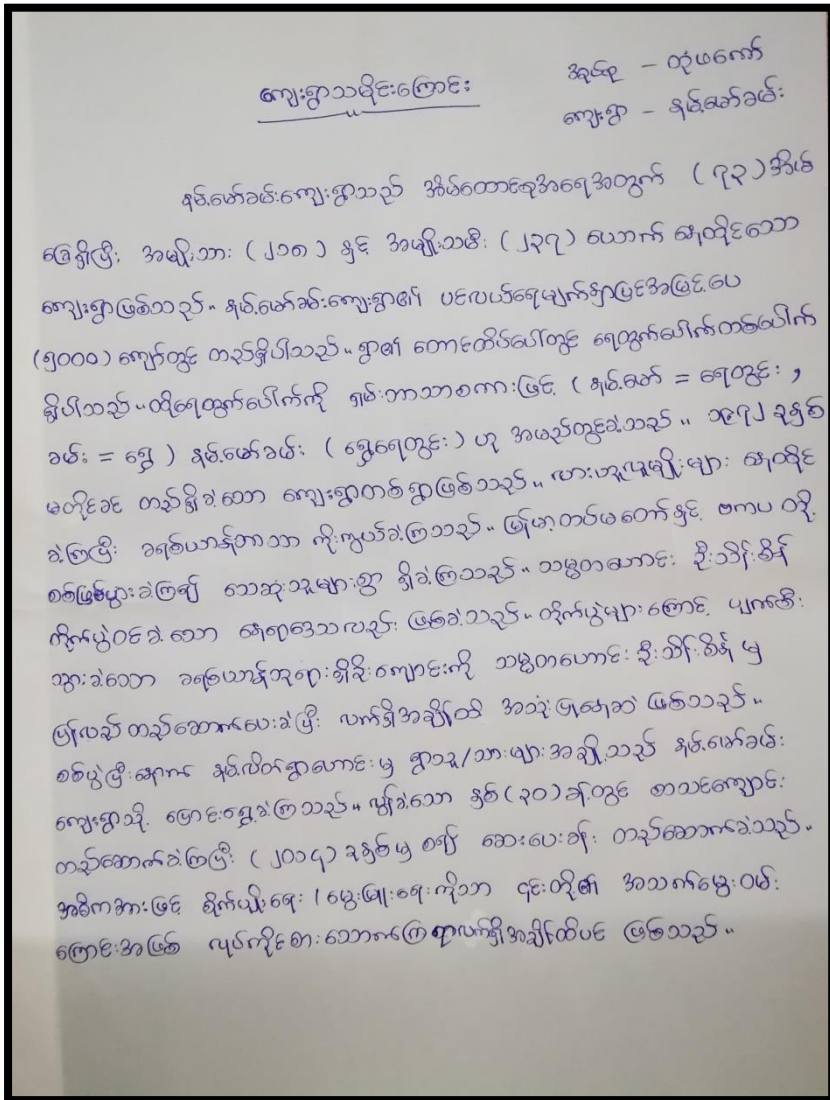 ကျေးရွာသမိုင်းကြောင်း
အုပ်စု - တုံမဏော်
ကျေးရွာ - နမ့်မော်ခမ်း
နမ့်မော်ခမ်းကျေးရွာသည် အိမ်ထောင်စုအရေအတွက် (၇၃) အိမ်
ခြေရှိပြီး အမျိုးသား (၂၁၈) နှင့် အမျိုးသမီး (၂၃၇) ယောက် နေထိုင်သော
ကျေးရွာဖြစ်သည်။ နမ့်မော်ခမ်းကျေးရွာ၏ ပင်လယ်ရေမျက်နှာပြင်အမြင့်ပေ
(၅၀၀၀) ကျော်တွင် တည်ရှိပါသည်။ ရွာ၏ တောင်ထိပ်ပေါ်တွင် ရေထွက်ပေါက်တစ်ပေါက်
ရှိပါသည်။ ထိုရေထွက်ပေါက်ကို ရှမ်းဘာသာစကားဖြင့် (နမ့်မော် = ရေတွင်း ,
ခမ်း = ရွှေ ) နမ့်မော်ခမ်း ( ရွှေရေတွင်း ) ဟု အမည်တွင်ခဲ့သည်။ ၁၉၇၂ ခုနှစ်
မတိုင်ခင် တည်ရှိခဲ့သော ကျေးရွာတစ်ရွာဖြစ်သည်။ လားဟူလူမျိုးများ နေထိုင်
ခဲ့ကြပြီး ခရစ်ယာန်ဘာသာ ကိုးကွယ်ခဲ့ကြသည်။ မြန်မာ့တပ်မတော်နှင့် ဗကပ တို့
စစ်ဖြစ်ပွားခဲ့ကြ၍ သေဆုံးသူများစွာ ရှိခဲ့ကြသည်။ သမ္မတဟောင်း ဦးသိန်းစိန်
တိုက်ပွဲဝင်ခဲ့သော နေရာဒေသလည်း ဖြစ်ခဲ့သည်။ တိုက်ပွဲများကြောင့် ပျက်စီး
သွားခဲ့သော ခရစ်ယာန်ဘုရားရှိခိုးကျောင်းကို သမ္မတဟောင်း ဦးသိန်းစိန် မှ
ပြန်လည်တည်ဆောက်ပေးခဲ့ပြီး လက်ရှိအချိန်ထိ အသုံးပြုနေဆဲ ဖြစ်သည်။
စစ်ပွဲပြီးနောက် နမ့်လိတ်ရွာဟောင်းမှ ရွာသူ/သားများအချို့သည် နမ့်မော်ခမ်း
ကျေးရွာသို့ ပြောင်းရွှေ့ခဲ့ကြသည်။ လွန်ခဲ့သော နှစ်(၃၀)ခန့်တွင် စာသင်ကျောင်း
တည်ဆောက်ခဲ့ကြပြီး (၂၀၁၄) ခုနှစ်မှ စ၍ ဆေးပေးခန်း တည်ဆောက်ခဲ့သည်။
အဓိကအားဖြင့် စိုက်ပျိုးရေး / မွေးမြူရေးကိုသာ ၎င်းတို့၏ အသက်မွေးဝမ်း
ကြောင်းအဖြစ် လုပ်ကိုင်စားသောက်ကြရာလက်ရှိအချိန်ထိပင် ဖြစ်သည်။